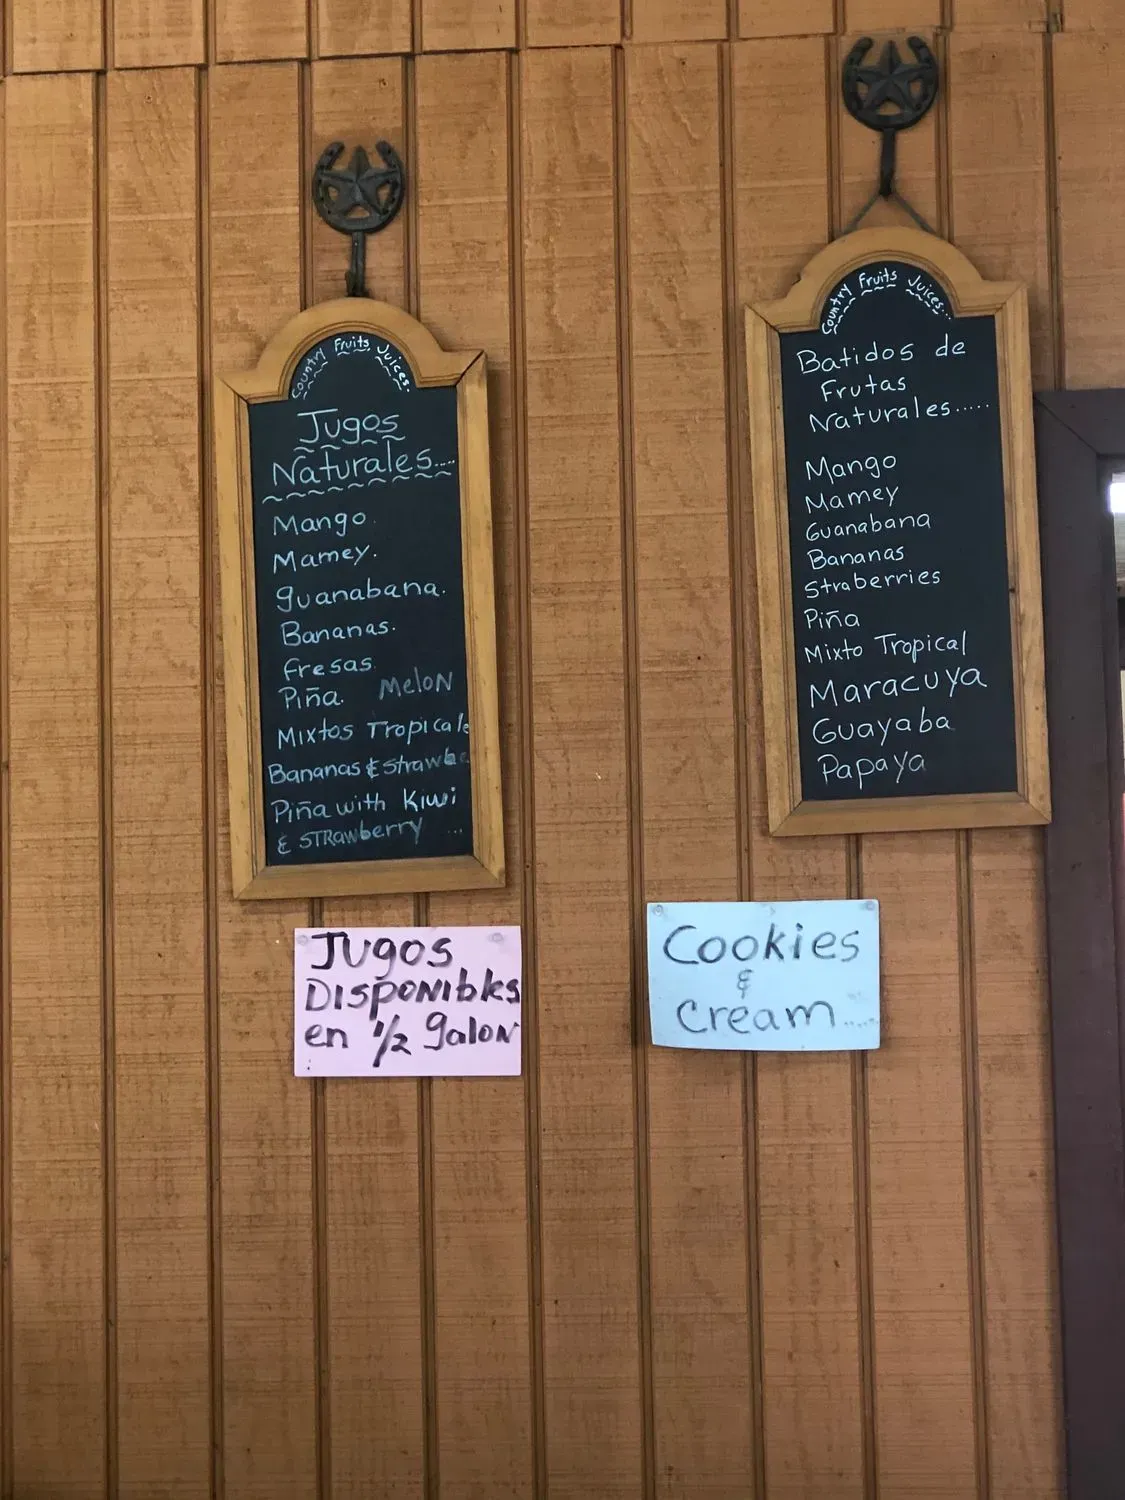 Country Fruits Juices.
Jugos
Naturales....
Mango.
Mamey.
guanabana.
Bananas.
fresas.
Piña. Melon
Mixtos Tropicale
Bananas & Strawbe
Piña with Kiwi
& STRawberry ...
JUGOS
DISPONIbles
en 1/2 galon
Country Fruits Juices...
Batidos de
Frutas
Naturales.....
Mango
Mamey
Guanabana
Bananas
Straberries
Piña
Mixto Tropical
Maracuya
Guayaba
Papaya
Cookies
&
Cream.....